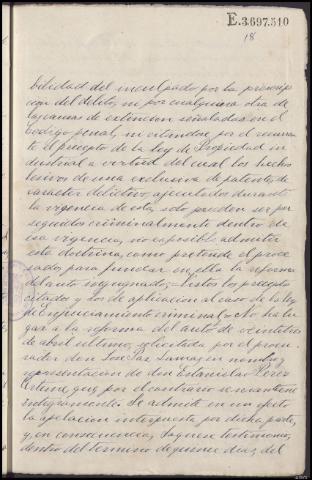 E.3.697.510
18
bilidad del inculpado por la prescrip
ción del delito, ni por cualquiera otra de
las causas de extinción señaladas en el
Código penal, ni citandose por el recurren
te el precepto de la ley de Propiedad in
dustrial a virtud del cual los hechos
lesivos de una exclusiva de patente, de
caracter delictivo, ejecutados durante
la vigencia de esta, solo pueden ser per
seguidos criminalmente dentro de
esa vigencia, no es posible admitir
esta doctrina, como pretende el proce
sado para fundar en ella la reforma
del auto impugnado.= Vistos los preceptos
citados y los de aplicación al caso de la ley
de Enjuiciamiento criminal,= No ha lu
gar a la reforma del auto de veintiseis
de abril ultimo, solicitada por el procu
rador don José Saz Lamas, en nombre y
representación de don Estanislao Perez
Artime, que por el contrario se mantiene
integramente. Se admite en un efecto
la apelación interpuesta por dicha parte,
y, en consecuencia, saquese testimonio,
dentro del termino de quince dias, del